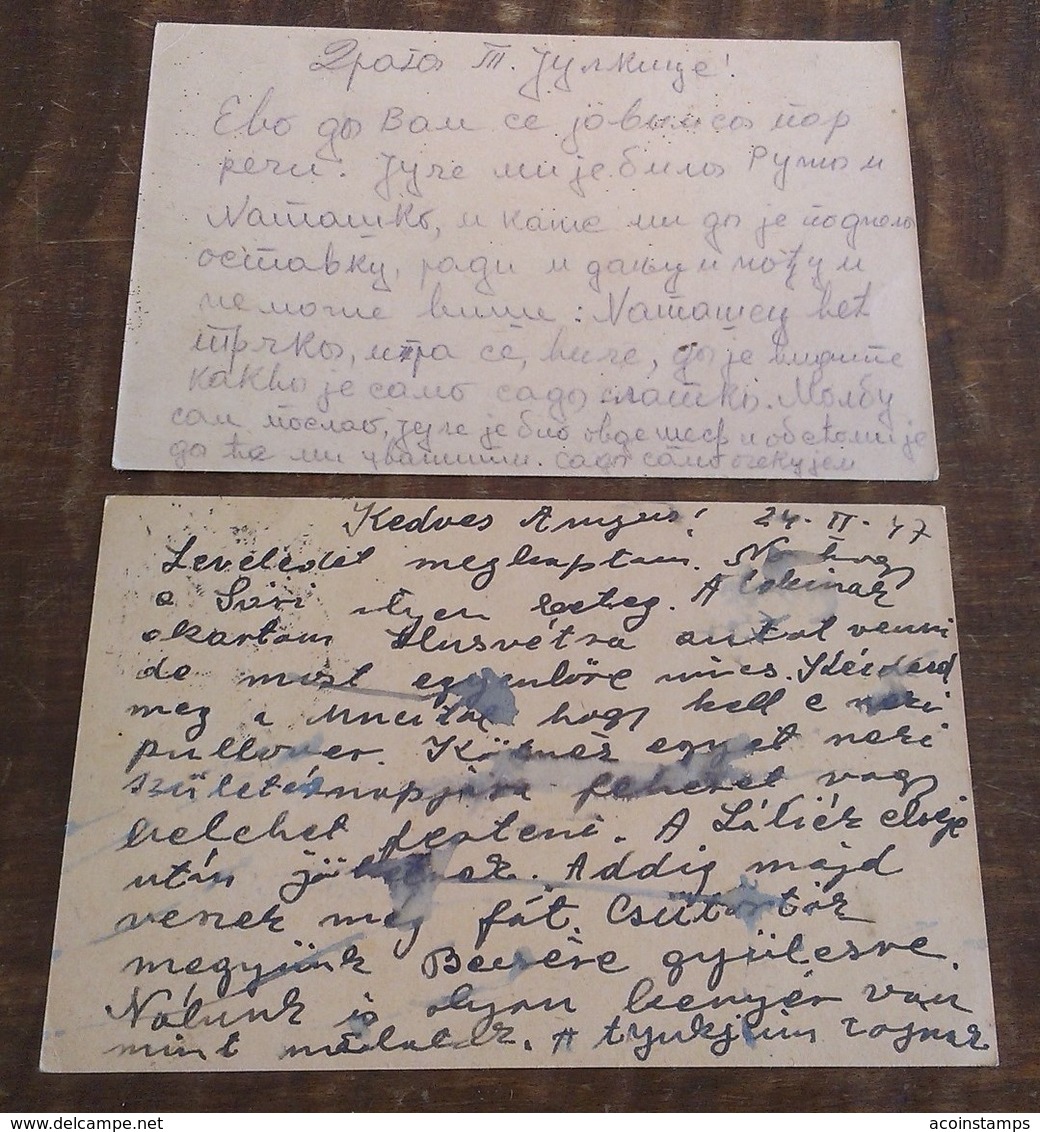 Драга Т. Јулкице!
Ево да Вам се јавим са пар
речи. Јуче ми је била Ружа и
Наташка, и каже ми да је поднела
оставку, ради и дању и ноћу и
не може више. Наташеу већ
трчка, игра се, виче, да је видите
каква је само сада слатка. Молбу
сам послао, јуче је био овде шеф и обећо ми је
да ће ми уважити. сада само очекујем
Kedves Anyus! 24. II. 47
Leveledet megkaptam. hogy
a Sári ilyen beteg. A
akartam Husvétra autot venni
de most egyenlőre nincs. Kérdezd
meg a hogy kell e neki
pullover. Kötnék egyet neki
születésnapjára fehéret vagy
lehet festeni. A Laciék elseje
után jönnek. Addig majd
veszek még fát. Csütörtök
megyünk Becsére gyülésre.
Nálunk is olyan kenyér van
mint nálatok. A tyukjaim tojnak
acoinstamps